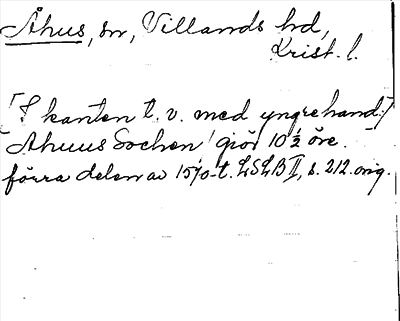 Åhus, sn, Villands hd,
Krist. l.
[I kanten t. v. med yngre hand:]
Ahuus Sochen giör 10 ½ öre.
förra delen av 1570-t. LSLB II, s. 212. orig.